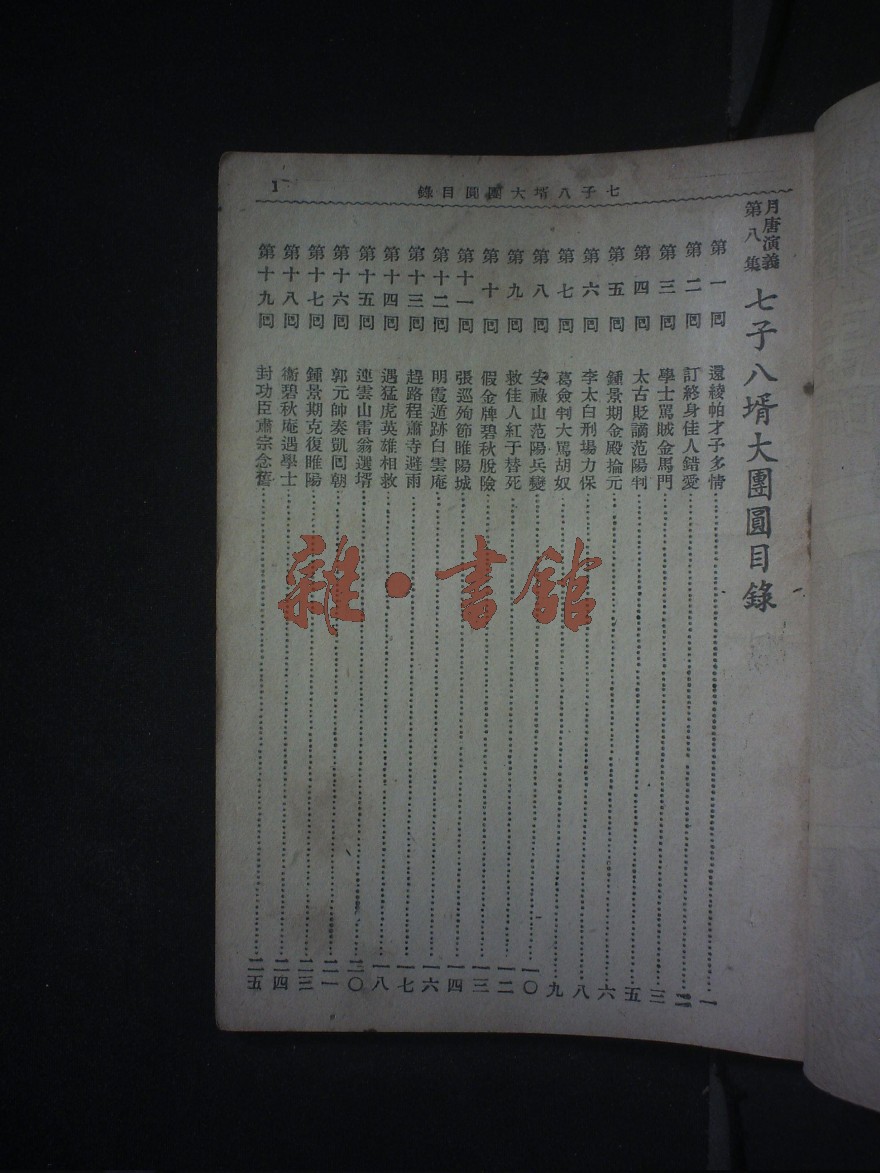 七子八壻大團圓目錄
1
月唐演義
第八集
七子八壻大團圓目錄
第一囘 還綾帕才子多情 一
第二囘 訂終身佳人錯愛 二
第三囘 學士罵賊金馬門 三
第四囘 太古貶謫范陽判 五
第五囘 鍾景期金殿掄元 六
第六囘 李太白刑場力保 八
第七囘 葛僉判大罵胡奴 九
第八囘 安祿山范陽兵變 一〇
第九囘 救佳人紅于替死 一二
第十囘 假金牌碧秋脫險 一三
第十一囘 張巡殉節睢陽城 一四
第十二囘 明霞遁跡白雲庵 一六
第十三囘 趕路程蕭寺避雨 一七
第十四囘 遇猛虎英雄相救 一八
第十五囘 連雲山雷翁選壻 二〇
第十六囘 郭元帥奏凱囘朝 二一
第十七囘 鍾景期克復睢陽 二三
第十八囘 衞碧秋庵遇學士 二四
第十九囘 封功臣肅宗念舊 二五
雜·書館